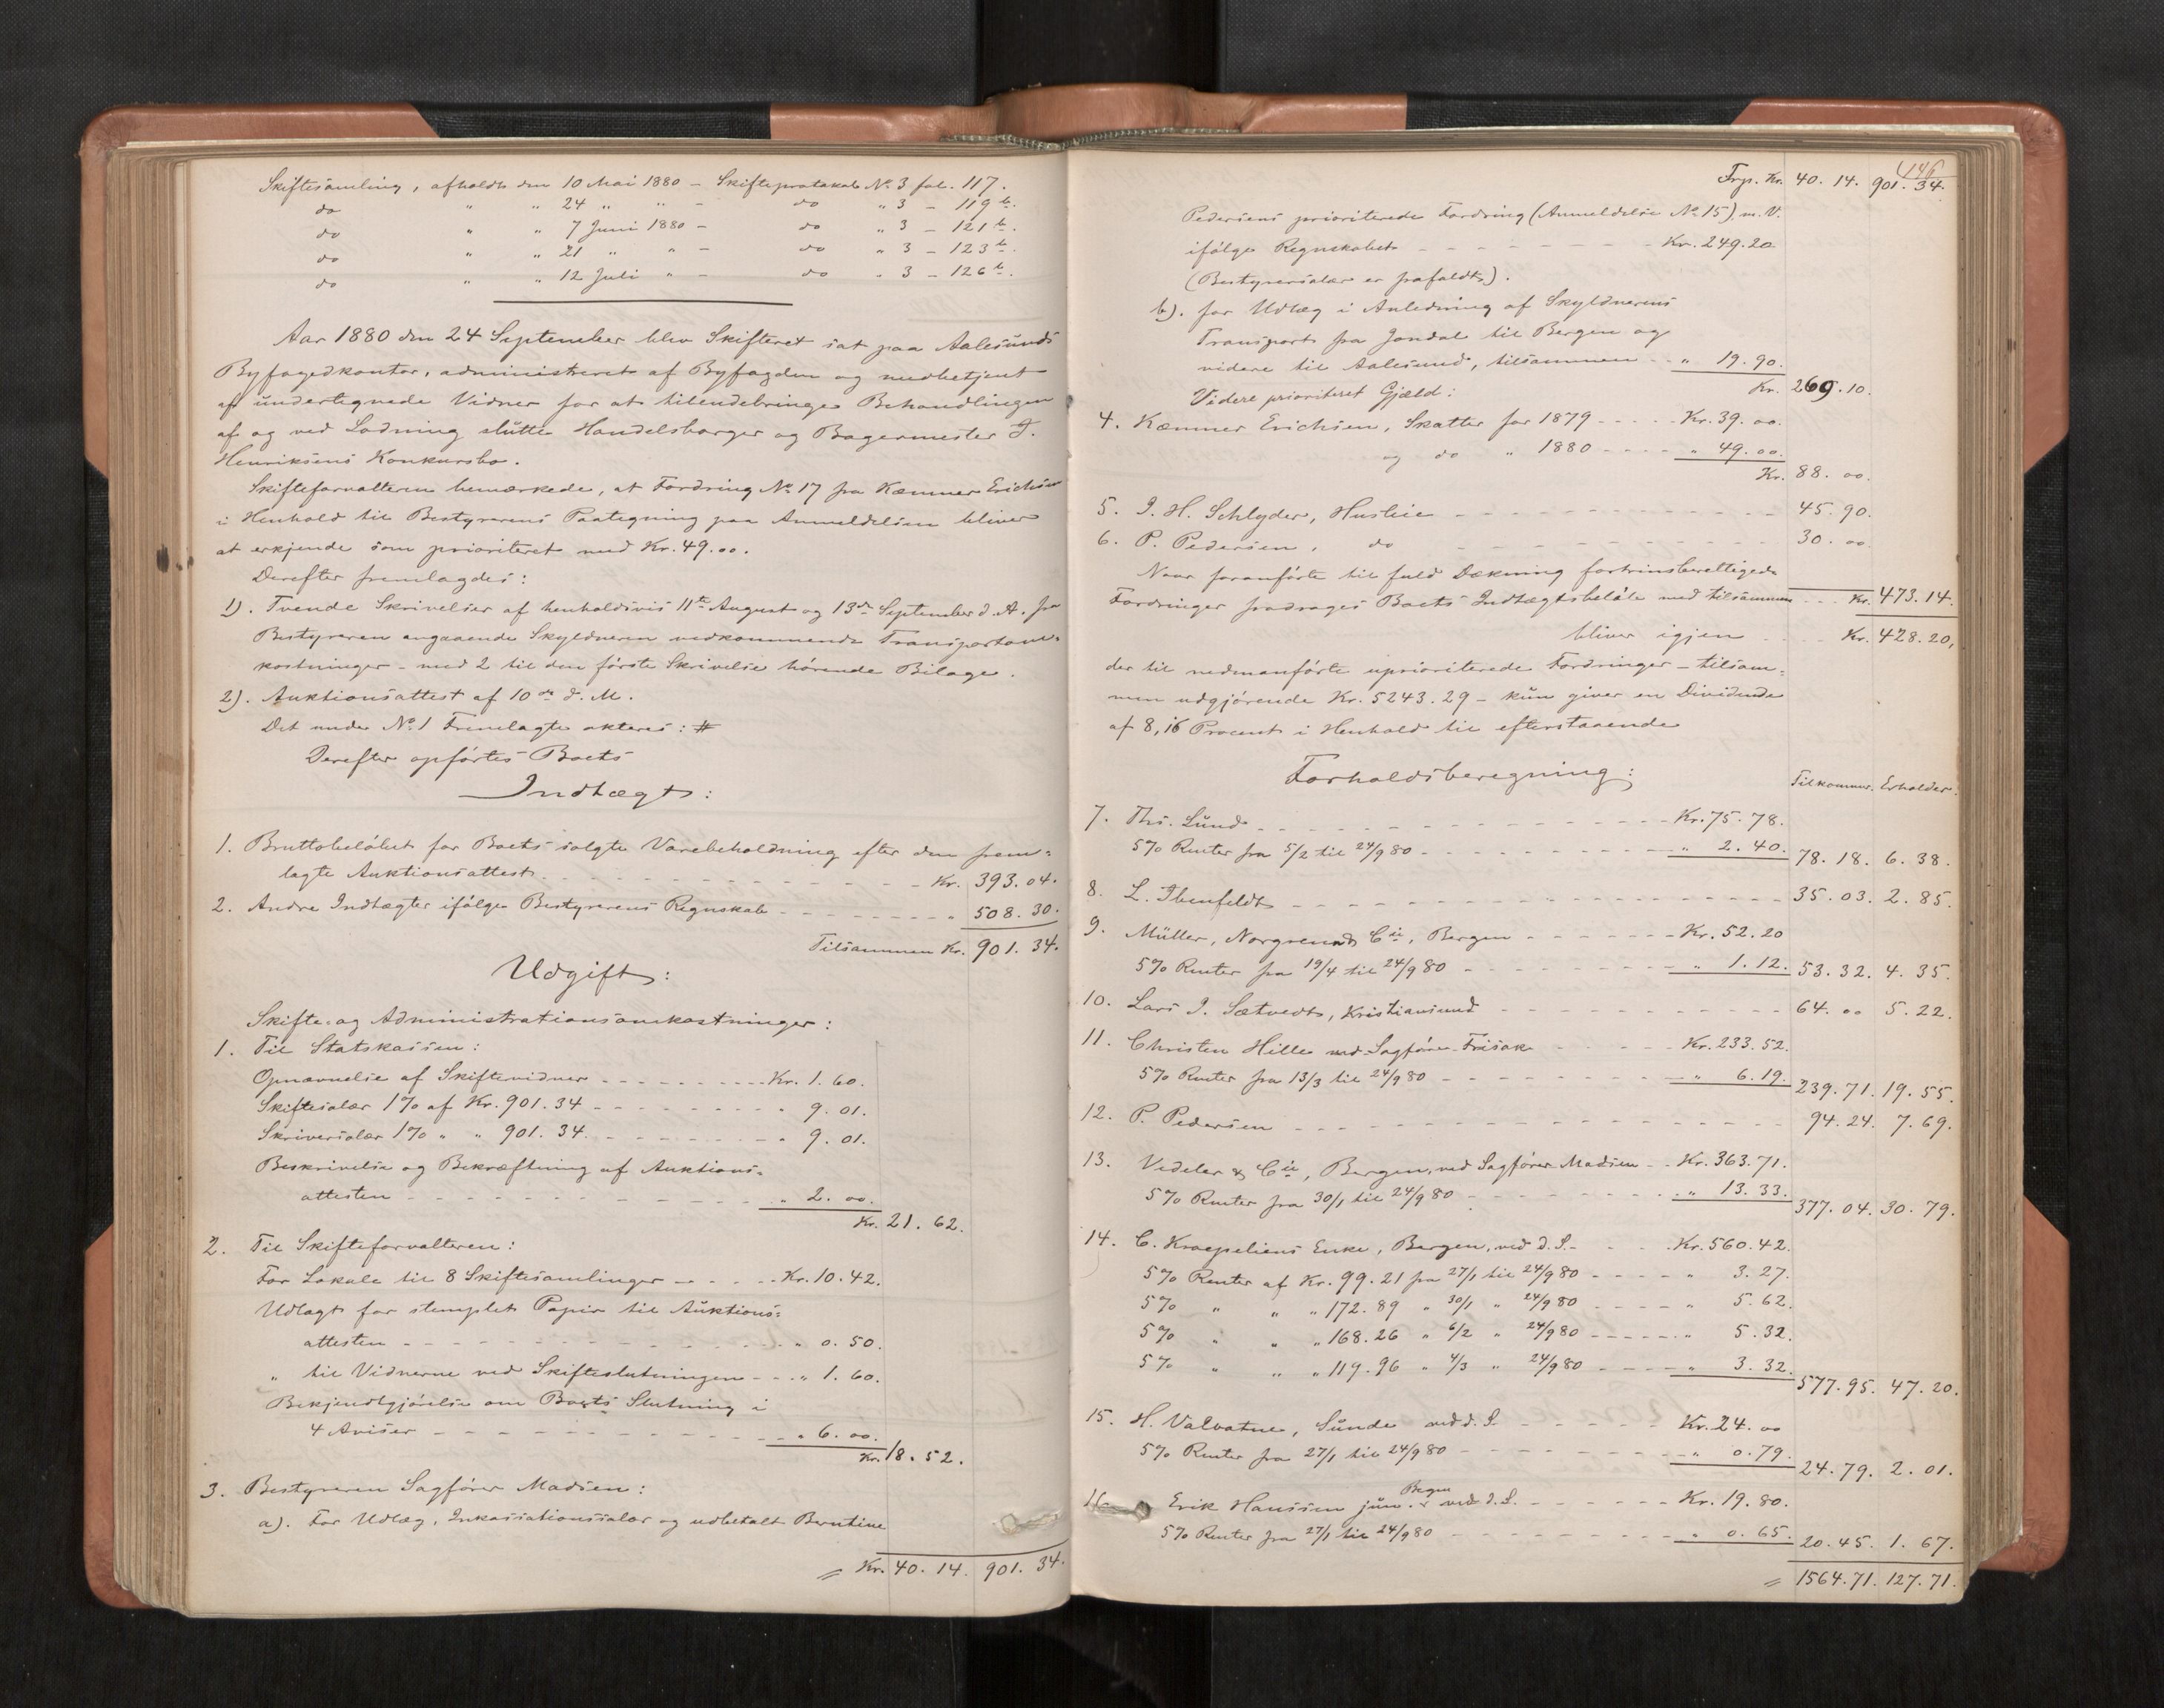 Skiftesamling, afholdt den 10 Mai 1880 – Skifteprotokol No 3 fol. 117.
do " " 24 " " – do " 3 – 119 b.
do " " 7 Juni 1880 – do " 3 – 121 b.
do " " 21 " " – do " 3 – 123 b.
do " " 12 Juli " – do " 3 – 126 b.
Aar 1880 den 24 September blev Skifteret sat paa Aalesunds
Byfogedkontor, administreret af Byfogden og medbetjent
af undertegnede Vidner for at tilendebringe Behandlingen
af og ved Lodning slutte Handelsborger og Bagermester T.
Henriksens Konkursbo.
Skifteforvalteren bemærkede, at Fordring No 17 fra Kæmner Erichsen
i Henhold til Bestyrerens Paategning paa Anmeldelsen bliver
at erkjende som prioriteret med Kr. 49.00.
Derefter fremlagdes:
1). Tvende Skrivelser af henholdsvis 11te August og 13de September d. A. fra
Bestyreren angaaende Skyldneren vedkommende Transportom-
kostninger – med 2 til den første Skrivelse hørende Bilage.
2). Auktionsattest af 10de d. M.
Det under No 1 Fremlagte akteres: #
Derefter opførtes Boets
Indtægt:
1. Bruttobeløbet for Boets solgte Varebeholdning efter den frem-
lagte Auktionsattest Kr. 393.04.
2. Andre Indtægter ifølge Bestyrerens Regnskab " 508.30.
Tilsammen Kr. 901.34.
Udgift:
Skifte- og Administrationsomkostninger:
1. Til Statskassen:
Opnævnelse af Skiftevidner Kr. 1.60.
Skiftesalær 1% af Kr. 901.34 " 9.01.
Skriversalær 1% " " 901.34. " 9.01.
Beskrivelse og Bekræftning af Auktions-
attesten " 2.00.
Kr. 21.62.
2. Til Skifteforvalteren:
For Lokale til 8 Skiftesamlinger Kr. 10.42.
Udlagt for stemplet Papir til Auktions-
attesten " 0.50.
" til Vidnerne ved Skifteslutningen " 1.60.
Bekjendtgjørelse om Boets Slutning i
4 Aviser " 6.00.
Kr. 18.52.
3. Bestyreren Sagfører Madsen:
a). For Udlæg, Inkassationssalær og udbetalt Berntine
Kr. 40.14. 901.34.
146
Frp. Kr. 40.14. 901.34.
Pedersens prioriterede Fordring (Anmeldelse No 15), m. V.
ifølge Regnskabet Kr. 249.20.
(Bestyrersalær er frafaldt).
b). for Udlæg i Anledning af Skyldnerens
Transport fra Jondal til Bergen og
videre til Aalesund, tilsammen " 19.90.
Kr. 269.10.
Videre prioriteret Gjæld:
4. Kæmner Erichsen, Skatter for 1879 Kr. 39.00.
og do " 1880 " 49.00.
Kr. 88.00.
5. J. H. Schlyder, Husleie 45.90.
6. P. Pedersen, do 30.00
Naar foranførte til fuld Dækning fortrinsberettigede
Fordringer fradrages Boets Indtægtsbeløb med tilsammen Kr. 473.14.
bliver igjen Kr. 428.20,
der til nedenanførte uprioriterede Fordringer – tilsam-
men udgjørende Kr. 5243.29 – kun giver en Dividende
af 8,16 Procent i Henhold til efterstaaende
Forholdsberegning:
Tilkommer. Erholder.
7. Ths. Lunde Kr. 75.78.
5% Renter fra 5/2 til 24/9 80 " 2.40. 78.18. 6.38.
8. L. Ibenfeldt 35.03. 2.85.
9. Müller, Norgreend & Cie, Bergen Kr. 52.20
5% Renter fra 19/4 til 24/9 80 " 1.12. 53.32. 4.35.
10. Lars J. Sætvedt, Kristiansund 64.00 5.22.
11. Christen Hille ved Sagfører Frisak Kr. 233.52.
5% Renter fra 13/3 til 24/9 80 " 6.19. 239.71. 19.55.
12. P. Pedersen 94.24. 7.69.
13. Vedeler & Cie, Bergen, ved Sagfører Madsen Kr. 363.71.
5% Renter fra 30/1 til 24/9 80 " 13.33. 377.04. 30.79.
14. C. Kroepeliens Enke, Bergen, ved d. S. Kr. 560.42.
5% Renter af Kr. 99.21 fra 27/1 til 24/9 80 " 3.27.
5% " " " 172.89 " 30/1 " 24/9 80 " 5.62.
5% " " " 168.26 " 6/2 " 24/9 80 " 5.32.
5% " " " 119.96 " 4/3 " 24/9 80 " 3.32. 577.95. 47.20.
15. H. Valvatne, Sunde ved d. S. Kr. 24.00
5% Renter fra 27/1 til 24/9 80 " 0.79. 24.79. 2.01.
16. Erik Hanssen jun. Bergen ved d. S. Kr. 19.80.
5% Renter fra 27/1 til 24/9 80 " 0.65. 20.45. 1.67.
1564.71. 127.71.